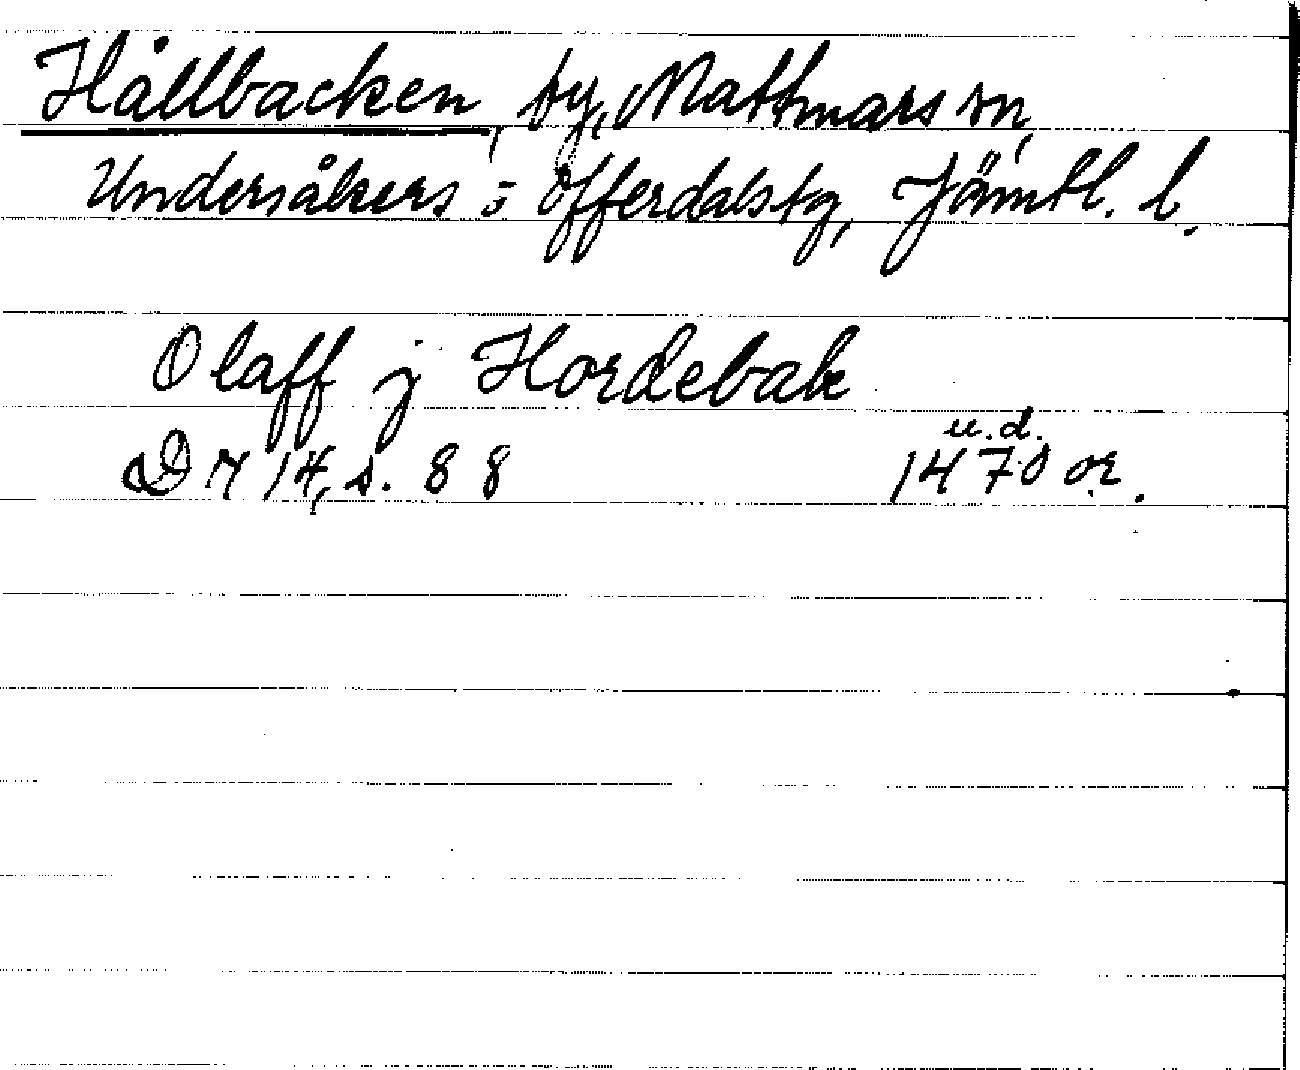 Hållbacken, by, Mattmars sn,
Undersåkers o Offerdals tg, Jämtl. l.
Olaff j Hordebak
u.d.
D 7 14, s. 88 1470 or.